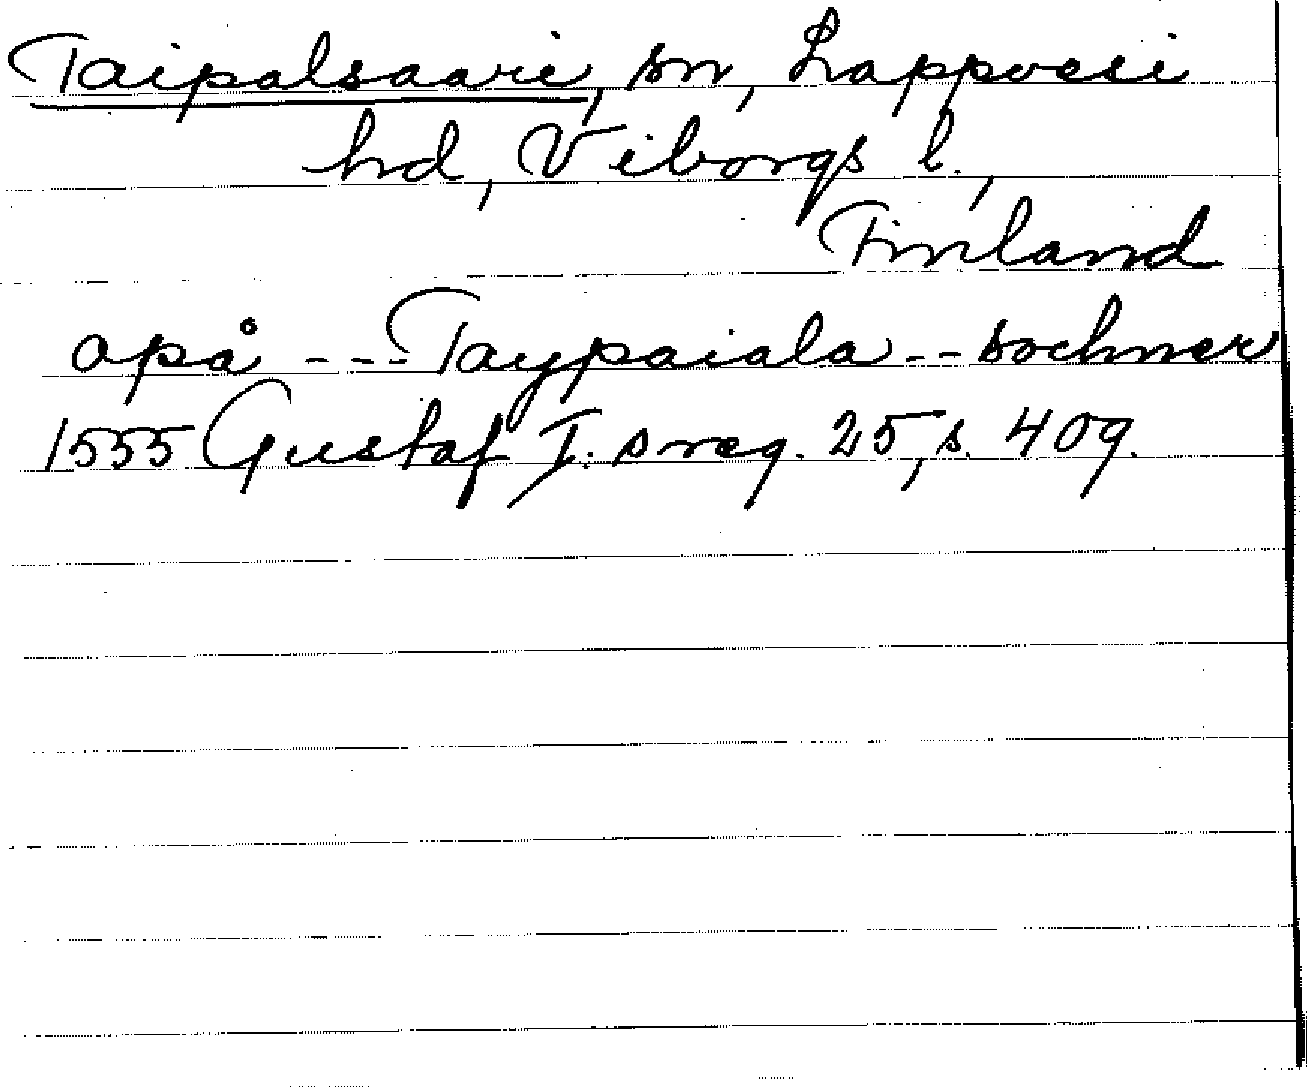 Taipalsaari, sn, Lappvesi
hd, Viborgs l.,
Finland
opå --- Taypaiala -- sochner
1555 Gustaf I:s reg. 25, s. 409.